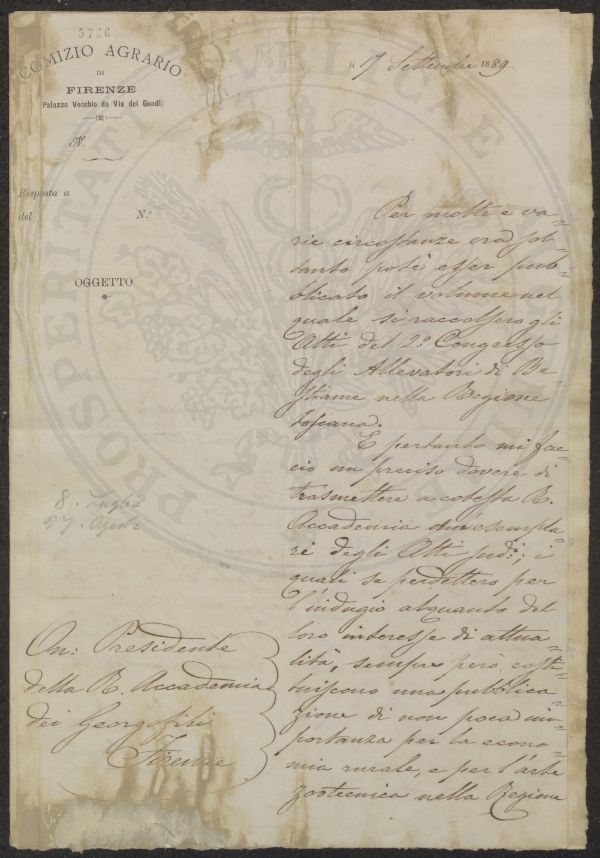 5766
COMIZIO AGRARIO
DI
FIRENZE
(Palazzo Vecchio da Via dei Gondi)
N.
Risposta a
del N.º
OGGETTO
li 17 Settembre 1889
Per molte e va-
rie circostanze ora sol-
tanto potè esser pub-
blicato il volume nel
quale si raccolsero gli
Atti del 2.º Congresso
degli Allevatori di Be-
stiame nella Regione
toscana.
E pertanto mi fac-
cio un preciso dovere di
trasmettere a cotesta R.
Accademia due esempla-
ri degli Atti sud.i; i
quali se perdettero per
l'indugio alquanto del
loro interesse di attua-
lità, sempre però costi-
tuiscono una pubblica-
zione di non poca im-
portanza per la econo-
mia rurale, e per l'arte
zootecnica nella Regione
8. Luglio
27. Agosto
On: Presidente
della R. Accademia
dei Georgofili
Firenze
PROSPERITATI PUBLICAE